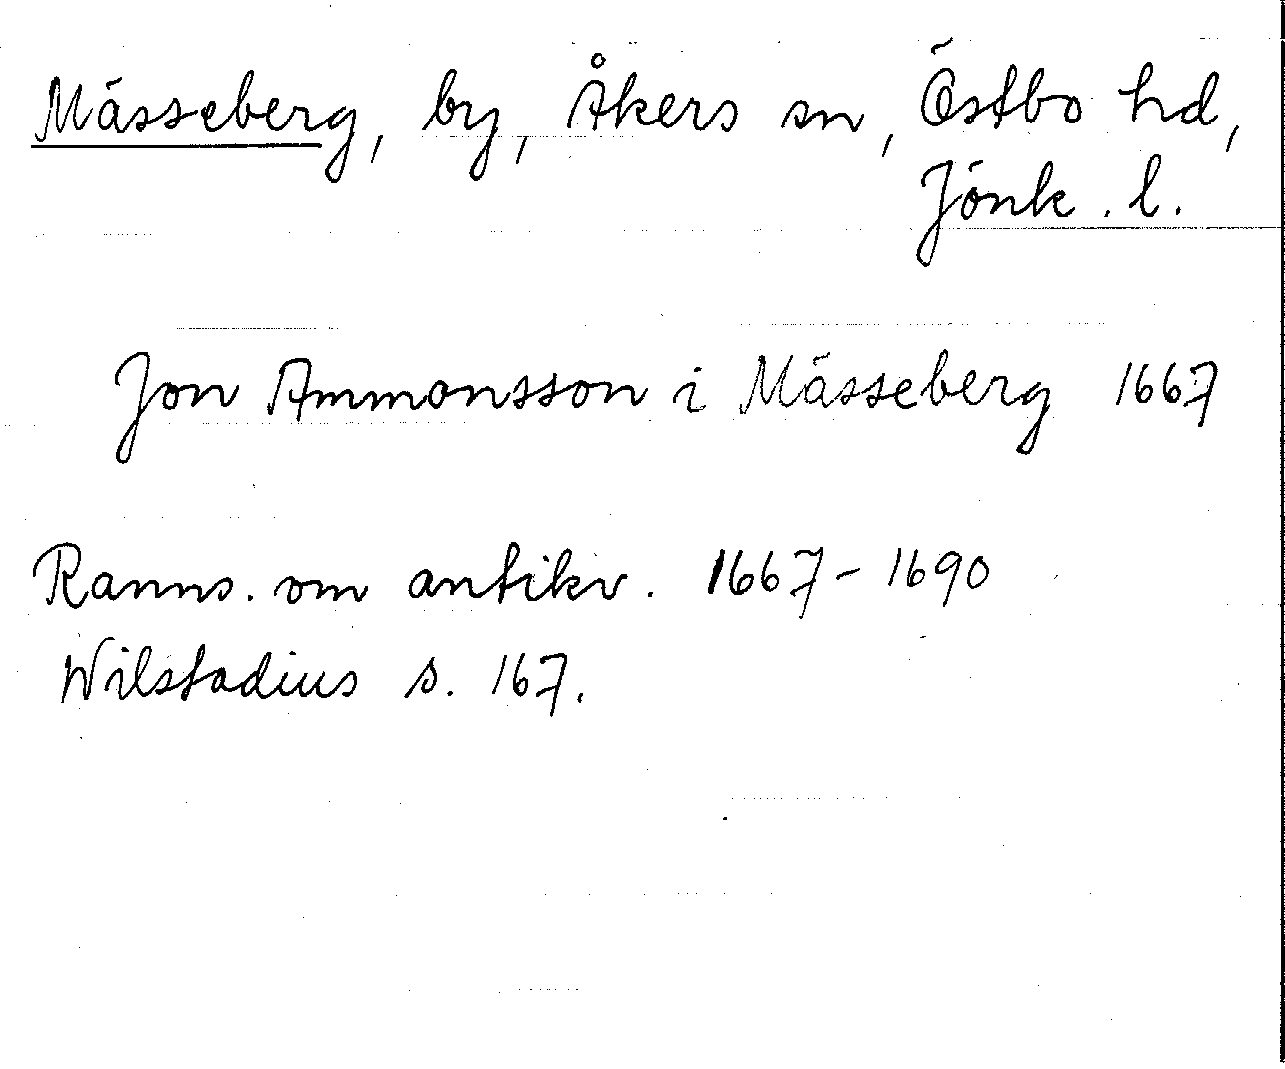 Mässeberg, by, Åkers sn, Östbo hd,
Jönk. l.
Jon Ammonsson i Mässeberg 1667
Ranns. om antikv. 1667-1690
Wilstadius s. 167.